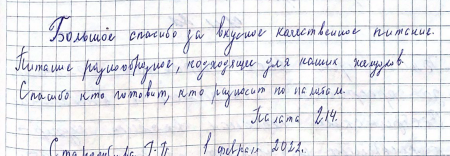 Большое спасибо за вкусное качественное питание.
Питание разнообразное, подходящее для наших желудков.
Спасибо кто готовит, кто разносит по палатам.
Палата 214.
1 февраля 2022.